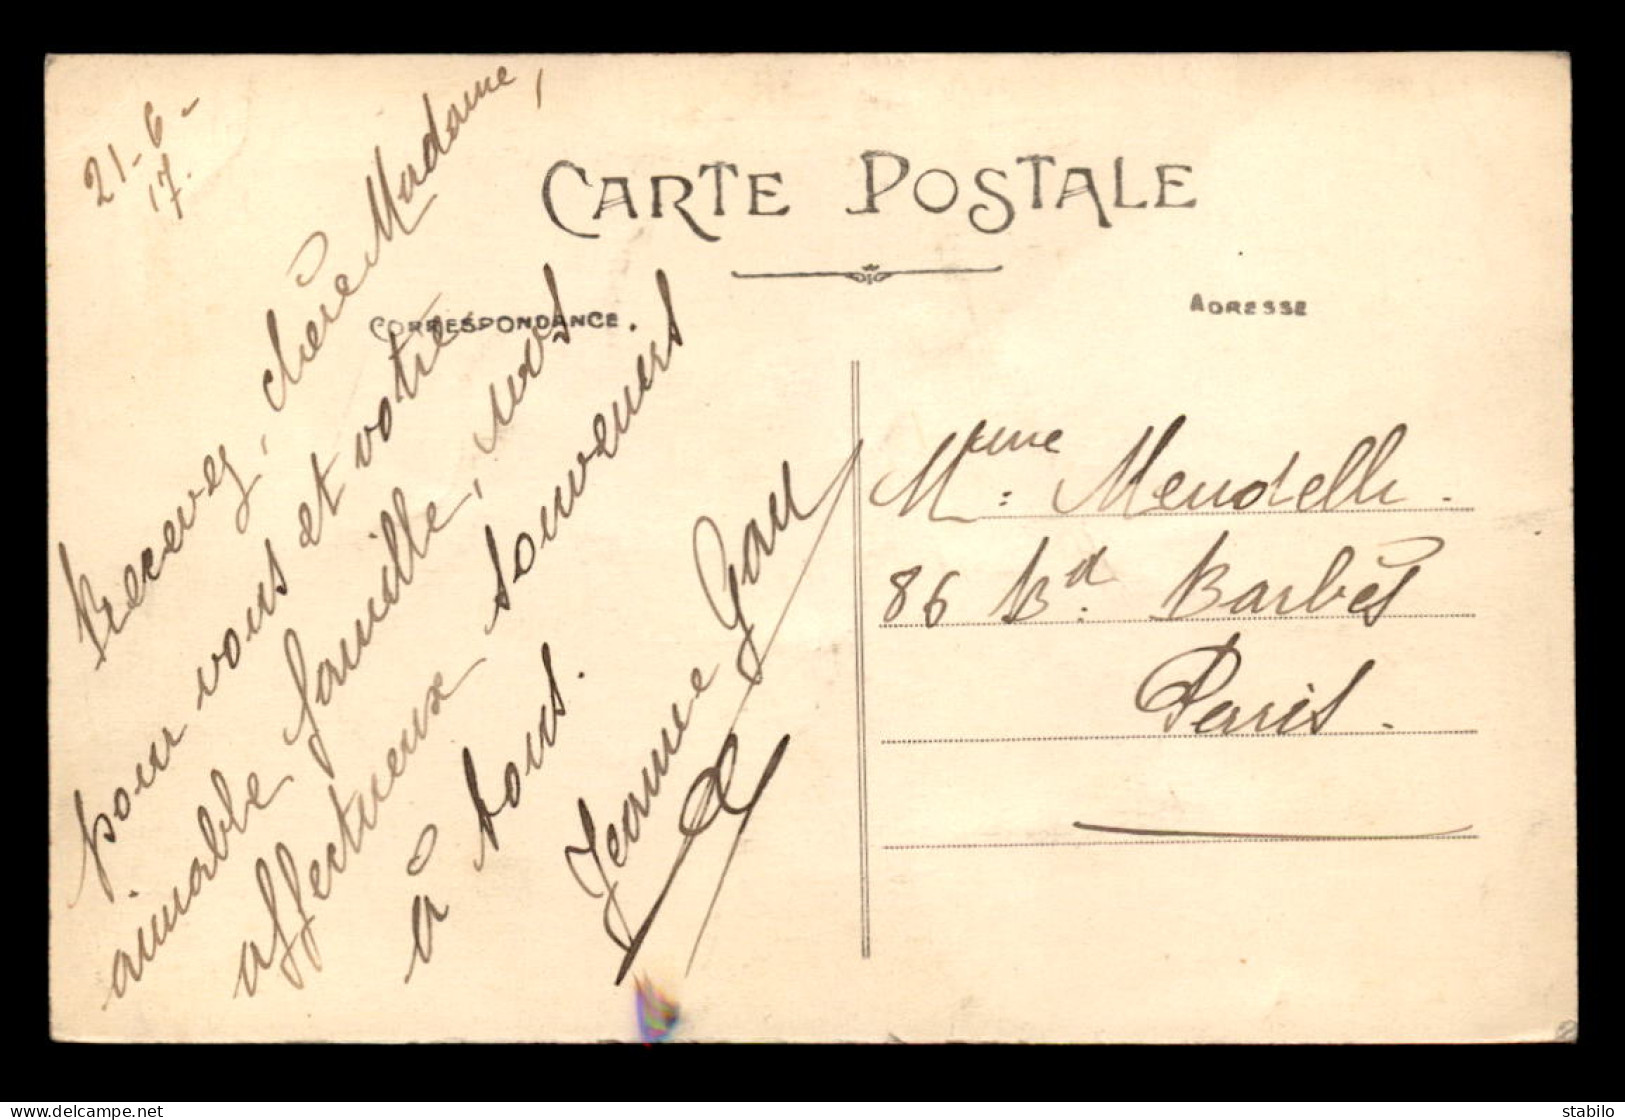 21-6-
17.
CARTE POSTALE
CORRESPONDANCE
ADRESSE
Recevez, chère Madame,
pour vous et votre
aimable famille, nos
affectueux souvenirs
à tous.
Jeanne
Mme: Mendelli.
86 Bd. Barbès
Paris.
www.delcampe.net
stabilo